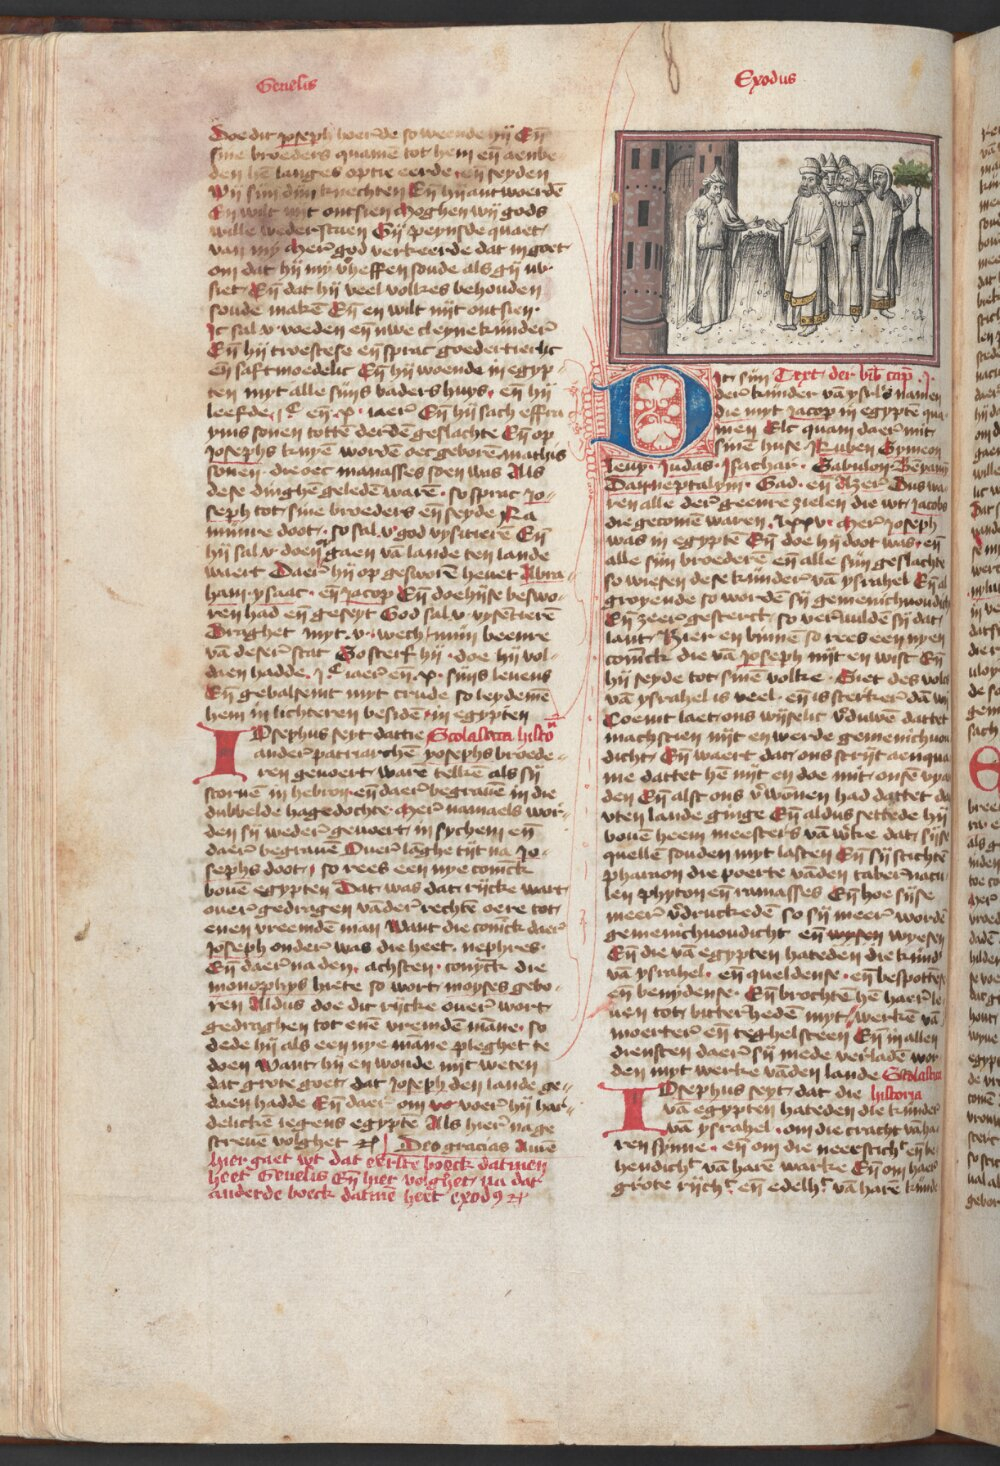 Genesis
Doe dit joseph hoerde so weende hij Eñ
sine broeders quamē tot hem eñ aenbe-
den hē langes optie eerde eñ seyden
Wij sijn dijn knechten Eñ hij antwoerdē
En wilt nijt ontsien Moghen wij gods
wille wederstaen Gij peynsde quaet
van mij Mer god verkeerde dat in goet
om dat hij mij v̄heffen soude als gij nv
siet Eñ dat hij veel volkes behouden
soude makē Eñ en wilt nijt ontsien
Ic sal v voeden eñ uwe cleyne kinder
Eñ hij troestese eñ sprac goedertierlic
eñ saftmoedelic Eñ hij woende in egyp-
ten myt alle sijns vaders huys eñ hij
leefde jc eñ x iaer Eñ hij sach effra
yms sonen totten derdē geslachte Eñ op
josephs knye wordē oec geborē mathis
sonen die oec manasses soen was Als
dese dinghē geledē warē so sprac Jo-
seph tot sine broeders eñ seyde Na
minre doot so sal v god vysitierē Eñ
hij sal v doen gaen vā lande ten lande
waert Daer hij op gesworē hevet Abra
ham ysaac eñ jacop Eñ doe hijse beswo-
ren had eñ geseyt God sal v vysētierē
Draghet myt v wech mijn beenre
vā deser stat So sterf hij doe hij vol-
daen hadde jc iaer en x sijns levens
Eñ gebalsemt myt crude so leydemē
hem in lichteren besidē in egypten
Josephus seyt dattie Scolastica histo
ander patriarchē josephs broede-
ren gevoert warē telkē als sij
storuē in hebron eñ daer begrauē in die
dubbelde hagedochte Mer namaels wor-
den sij weder gevoert in sychem eñ
daer begrauē Ouer lāghe tijt na Jo-
sephs doot so rees een nye coninck
bouē egypten Dat was dat rijcke wart
ouer gedragen vā der rechtē oere tot
enen vreemden man Want die coninck daer
Joseph onder was die heet nephres
Eñ daer na den achsten coninck die
monophys hiete so wort moyses gebo-
ren Aldus doe dit rijcke ouer wort
gedraghen tot enē vremdē māne so
dede hij als een nye māne pleghet te
doen Want hij en woude nijt weten
dat grote goet dat Joseph den lande ge-
daen hadde Eñ daer om voer hij har-
delickē iegens egyptē Als hier na ge
screuē volghet Deo gracias Amē
Hier gaet wt dat eerste boeck datmen
heet Genesis Eñ hier volghet na dat
anderde boeck datmē heet exodꝰ
Exodus
Dit sijn Text der bib cap j
der kinder vā ysrls namen
die myt Jacop in egyptē qua
men Elc quam daer mit
sinē huse Ruben Symeon
Leuy Judas Isachar Sabulon Beniamin
Dan neptalym Gad eñ Aser Dus wa
ren alle der geenre zielen die wt Jacobs
die gecomē waren lxxv Mer Joseph
was in egyptē Eñ doe hij doot was eñ
alle sijn broederē eñ alle sijn geslachte
so wiesen dese kinder vā ysrahel Eñ al
groyende so wordē sij gemenichuoudich
Eñ zeer gesterct so veruuldē sij dat
lant Hier en binnē so rees een nyen
coninck die vā Joseph nijt en wist Eñ
hij seyde tot sinē volke Siet des volc
vā ysrahel is veel eñ is stercker dā wij
Coemt laet ons wijselic v̄duwen dattet
machscien nijt en werde gemenichuou
dicht Eñ waert dat ons strijt aenqua
me dattet hē nijt en doe mit onsen vyan
den Eñ alst ons v̄wonen had dattet da
vten lande ginge Eñ aldus settede hij
bouē heem meesters vā wercke dat sijse
quellē souden myt lasten Eñ sij stichtē
pharaon die poerte vāden tabernacu
len phyton eñ ramasses Eñ hoe sijse
meer v̄druckedē so sij meer wordē
gemenichuoudicht eñ wiesen
Eñ die vā egypten hateden die kinder
vā ysrahel eñ queldense eñ bespottēse
eñ benijdense Eñ brochtē hē haer le
uen tot bitterhedē myt werkē vā
moerter eñ teghelsteen Eñ in allen
diensten daer sij mede verladē wor
den myt werke vāden lande Scolastica
Josephus seyt dat die historia
vā egypten hateden die kinder
vā ysrahel om die cracht vā ha
ren synne eñ om die neersticht eñ be
hendicht vā hare warke Eñ om haer
grote rijcht eñ edelht vā harē kinde